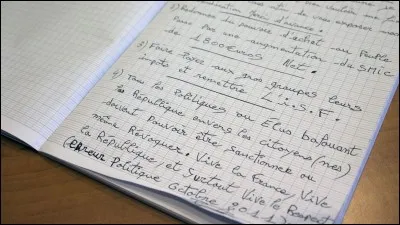 2) Redonner du pouvoir d'achat au Peuple
Puis par une augmentation du SMIC
de 1800 euros Net.
3) Faire Payer aux gros groupes leurs
impots et remettre L'I.S.F.
4) Tous les Politiques ou Elus bafouant
la République envers les citoyens (nes)
doivent Pouvoir être sanctionner ou
même Révoquer. Vive la France, Vive
la République, et surtout Vive le Respect
(erreur Politique